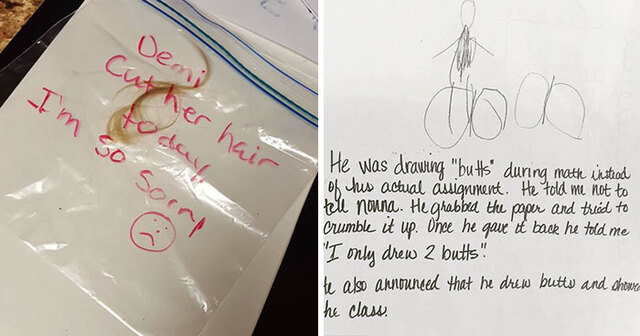 Demi
Cut her hair
today
I'm so sorry
He was drawing "butts" during math instead
of his actual assignment. He told me not to
tell nonna. He grabbed the paper and tried to
crumble it up. Once he gave it back he told me
"I only drew 2 butts".
He also announced that he drew butts and showed
the class.